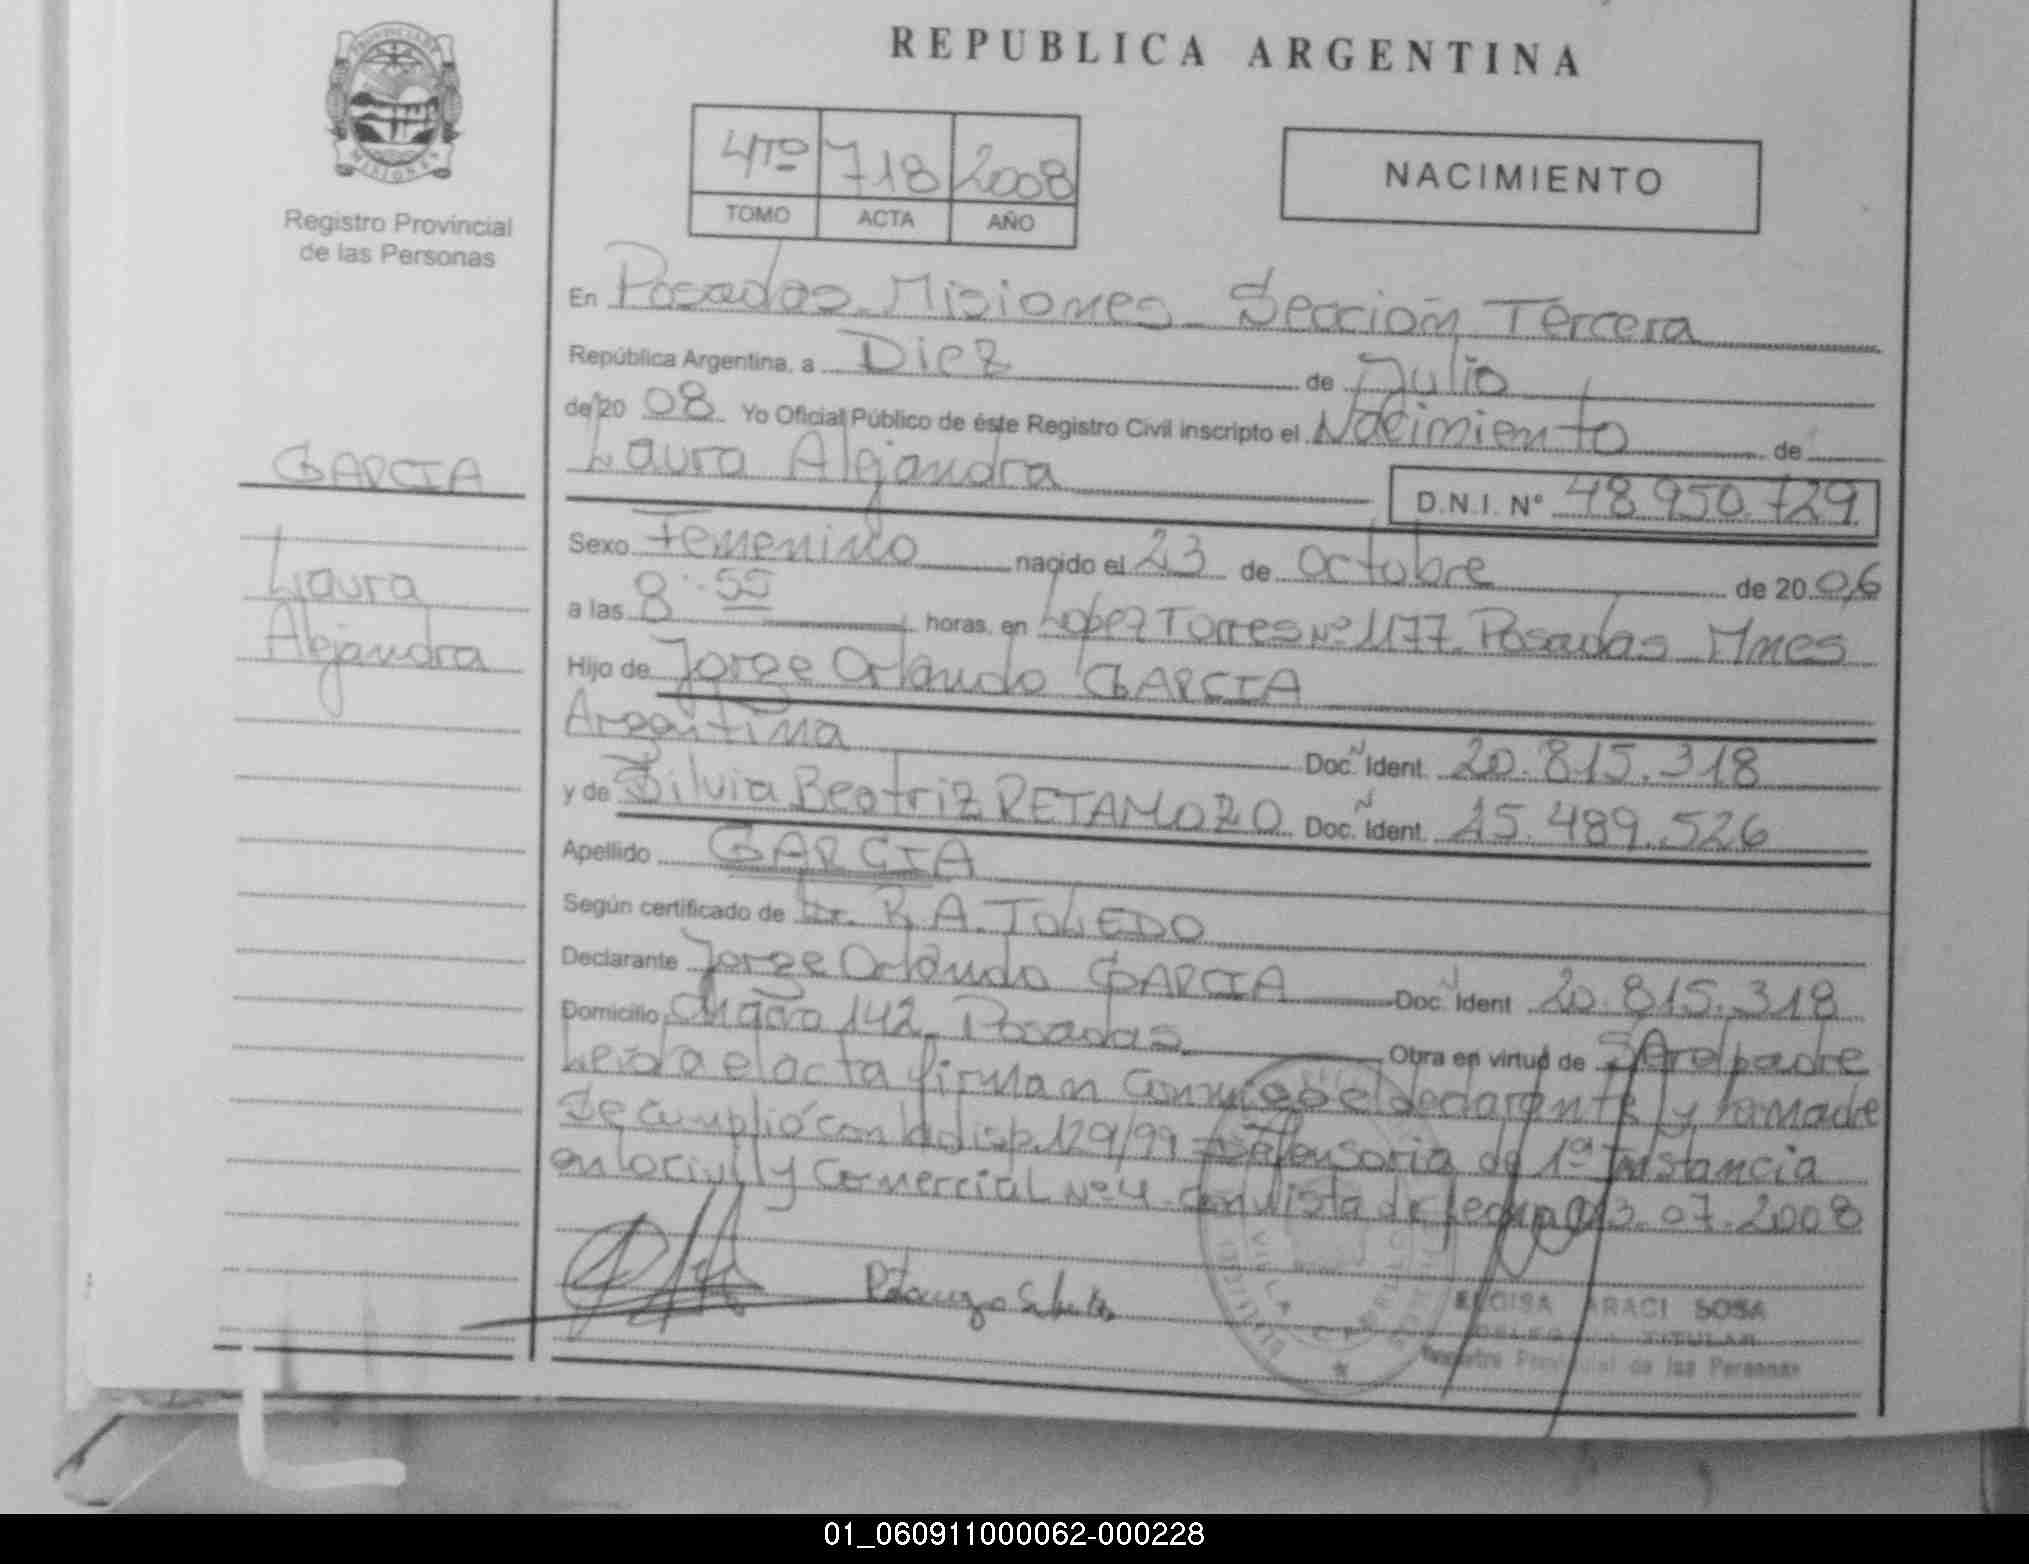 REPUBLICA ARGENTINA
PROVINCIA DE
MISIONES
Registro Provincial
de las Personas
4to 718 2008
TOMO ACTA AÑO
NACIMIENTO
En Posadas Misiones Sección Tercera
República Argentina, a Diez de Julio
de 20 08 Yo Oficial Público de éste Registro Civil inscripto el Nacimiento de
GARCIA
Laura Alejandra D.N.I. N° 48.950.729
Sexo Femenino nacido el 23 de octubre de 20 06
Laura
Alejandra
a las 8:55 horas, en Lopez Torres Nº 1177. Posadas Mnes
Hijo de Jorge Orlando GARCIA
Argentina Doc. Ident. 20.815.318
y de Silvia Beatriz RETAMOZO Doc. Ident. 15.489.526
Apellido GARCIA
Según certificado de Dr. R.A. TOLEDO
Declarante Jorge Orlando GARCIA Doc. Ident 20.815.318
Domicilio 142 Posadas Obra en virtud de Ser el padre
Leida el acta firman conmigo el declarante y la madre
Se cumplió con la disp. 129/99 Defensoria de 1º Instancia
en lo civil y Comercial Nº 4 con vista de fecha 03.07.2008
ELOISA ARACI SOSA
DELEGADA TITULAR
Registro Provincial de las Personas
01_060911000062-000228